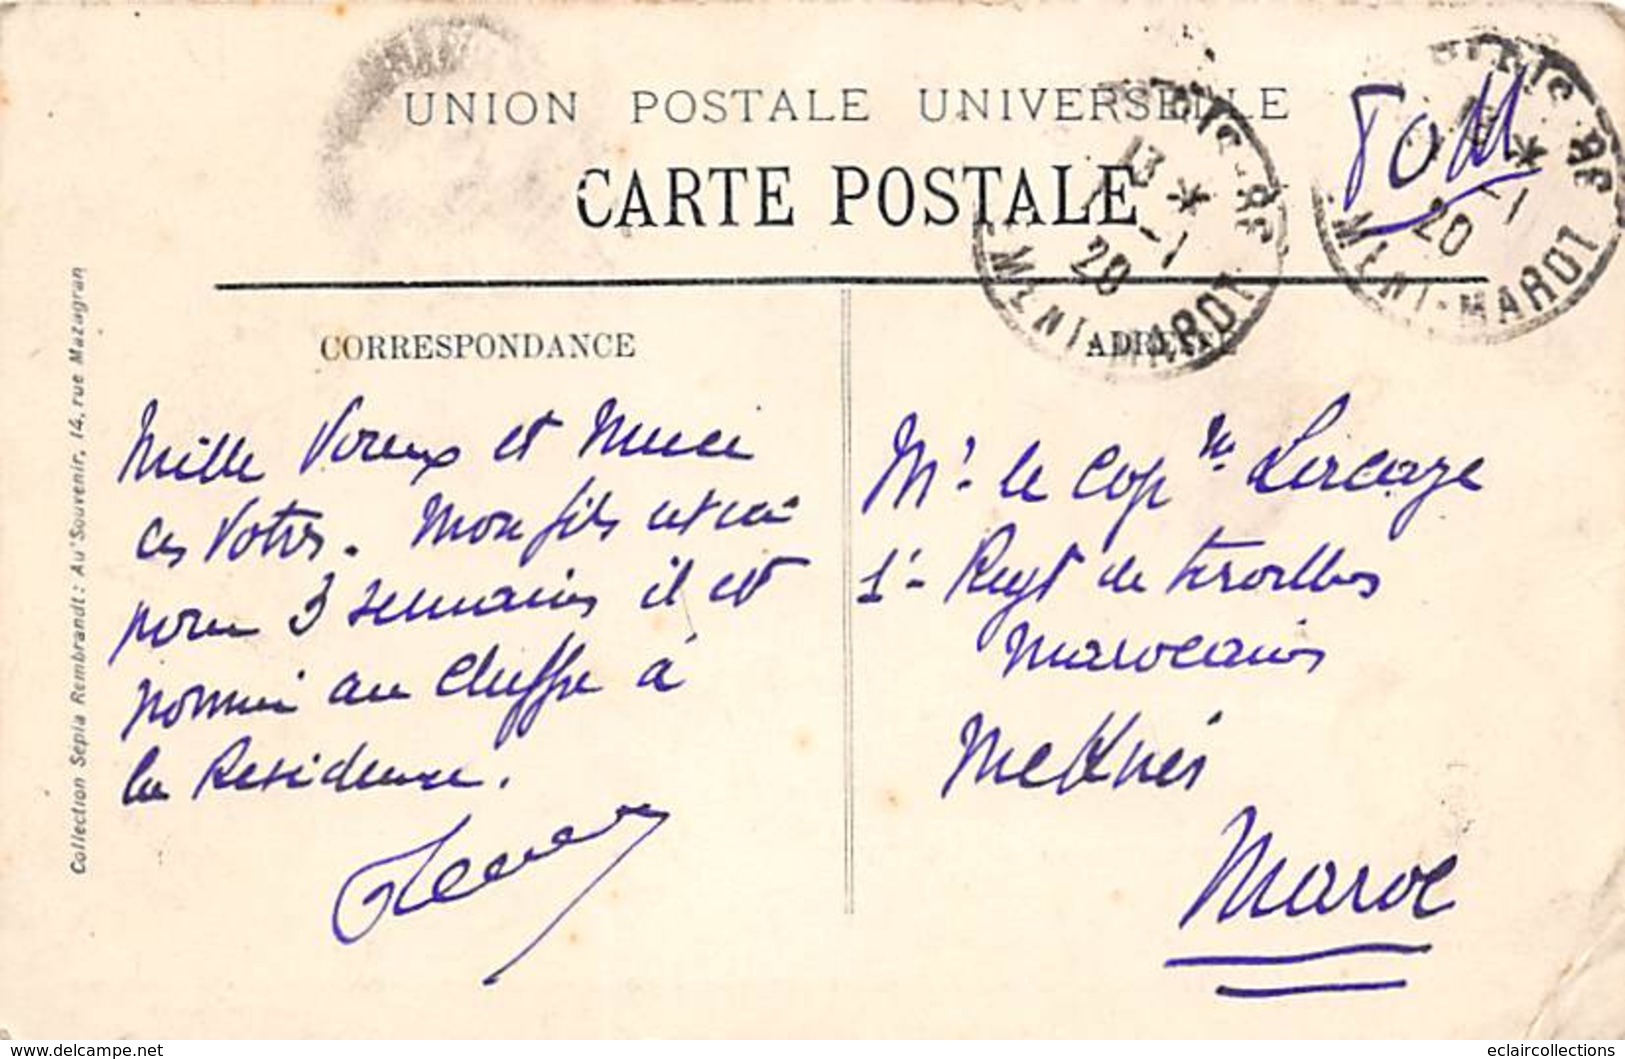 UNION POSTALE UNIVERSELLE
CARTE POSTALE
CORRESPONDANCE
ADRESSE
Mille Voeux et Merci
des Votres. Mon fils est ici
pour 3 semaines il est
nommé au Chiffre à
la Residence.
Mr le Cap ne Larcaze
1er Regt de tirailleurs
marocains
Meknès
Maroc
13 *
-1
20
MENI-MAROT
*
-1
20
MENI-MAROT
Collection Sépia Rembrandt: Au Souvenir, 14, rue Mazagran
www.delcampe.net
eclaircollections